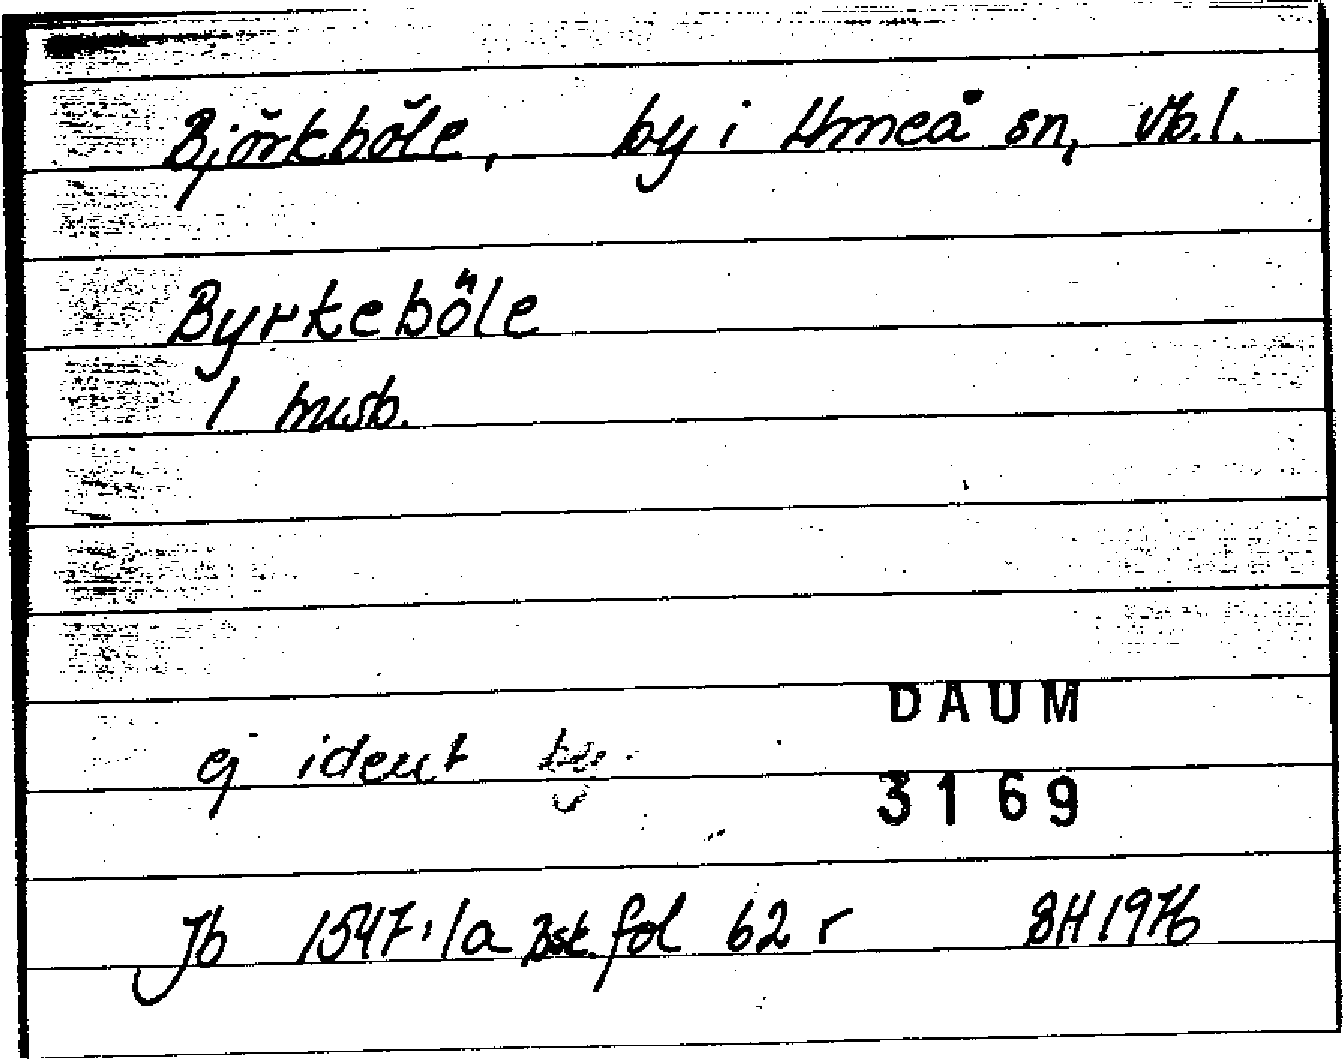 Björkböle, by i Umeå sn, Vb.l.
Byrkeböle
1 husb.
DAUM
ej ident by.
3169
Jb 1547:1a Bst. fol 62 r BH 1976